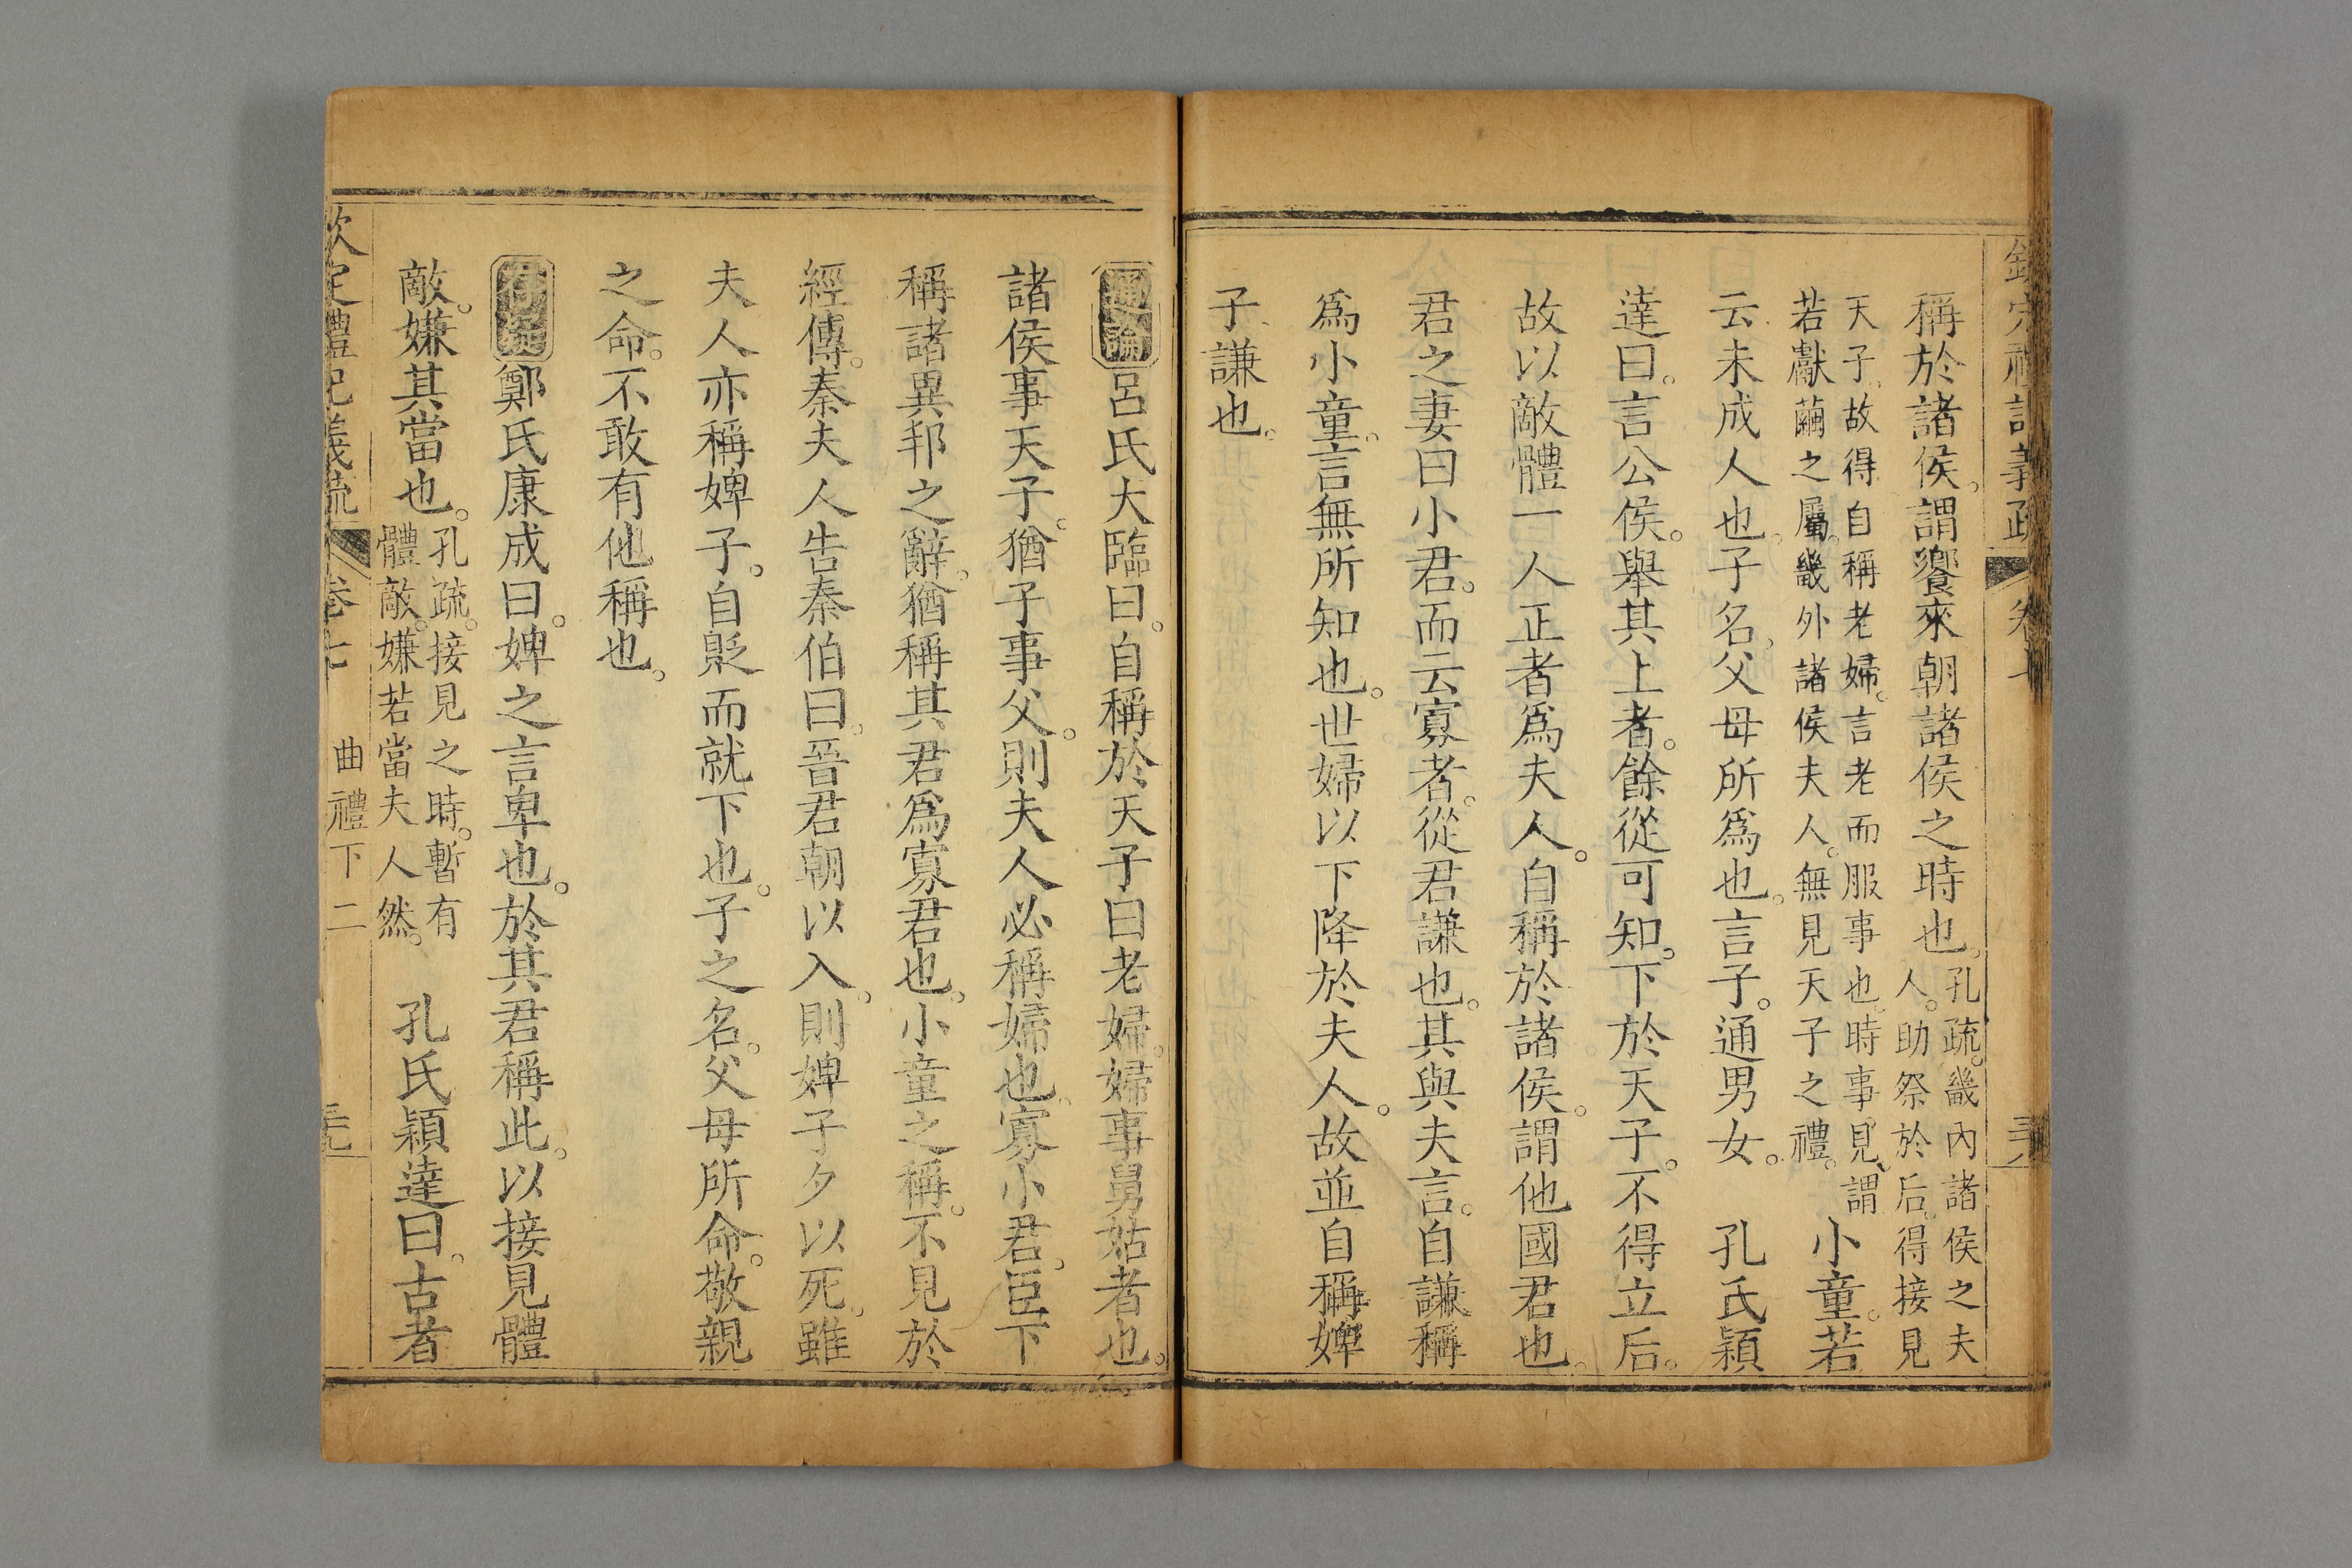 欽定禮記義疏 卷七
稱於諸侯。謂饗來朝諸侯之時也。孔疏。畿內諸侯之夫
人。助祭於后。得接見
天子。故得自稱老婦。言老而服事也。時事見、謂
若獻繭之屬。畿外諸侯夫人。無見天子之禮。小童。若
云未成人也。子名。父母所爲也。言子。通男女。 孔氏穎
達曰。言公侯。舉其上者。餘從可知。下於天子。不得立后。
故以敵體一人正者爲夫人。自稱於諸侯。謂他國君也。
君之妻曰小君。而云寡者。從君謙也。其與夫言。自謙稱
爲小童。言無所知也。世婦以下降於夫人。故並自稱婢
子謙也。
通論呂氏大臨曰。自稱於天子曰老婦。婦事舅姑者也。
諸侯事天子。猶子事父。則夫人必稱婦也。寡小君。臣下
稱諸異邦之辭。猶稱其君爲寡君也。小童之稱。不見於
經傳。秦夫人告秦伯曰。晉君朝以入。則婢子夕以死。雖
夫人亦稱婢子。自貶而就下也。子之名。父母所命。敬親
之命。不敢有他稱也。
鄭氏康成曰。婢之言卑也。於其君稱此。以接見體
敵。嫌其當也。孔疏。接見之時。暫有
體敵。嫌若當夫人然。 孔氏穎達曰。古者
欽定禮記義疏 卷七 曲禮下二